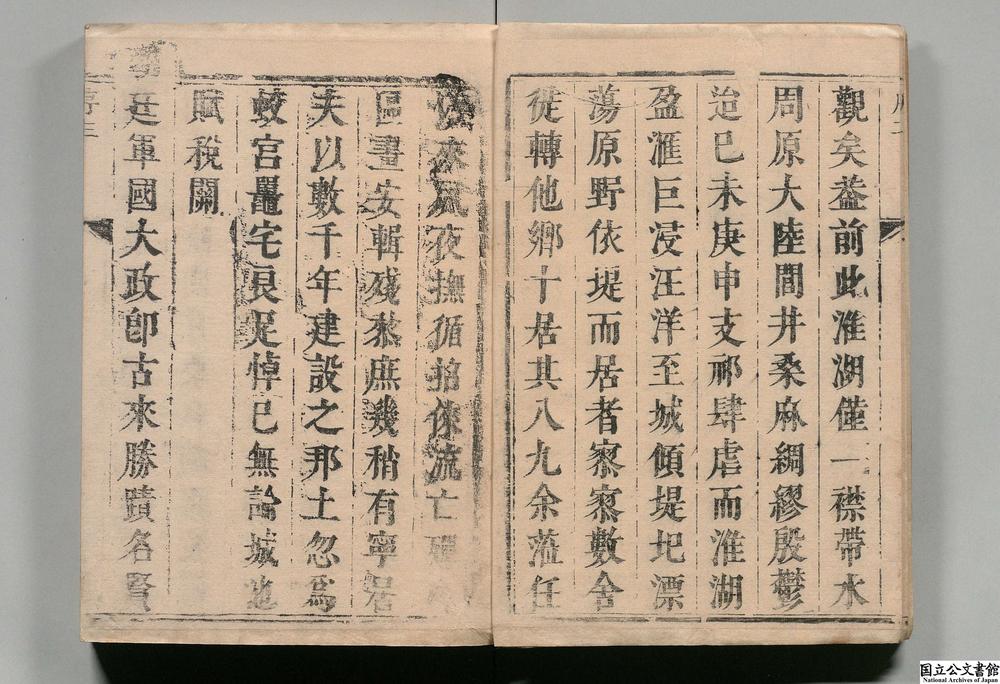 觀矣葢前此淮湖僅一襟帶水
周原大陸間井桑麻綢繆殷鬱
迨已未庚申支祁肆虐而淮湖
盈滙巨浸汪洋至城傾堤圯漂
蕩原野依堤而居者寥寥數舍
徙轉他鄉十居其八九余蒞任
以來夙夜撫循招徠流亡
區畫安輯殘黎庶幾稍有寧居
夫以數千年建設之邦土忽爲
蛟宮鼉宅良足悼已無論城池
賦稅關
廷軍國大政卽古來勝蹟名賢
序三
国立公文書館
National Archives of Japan